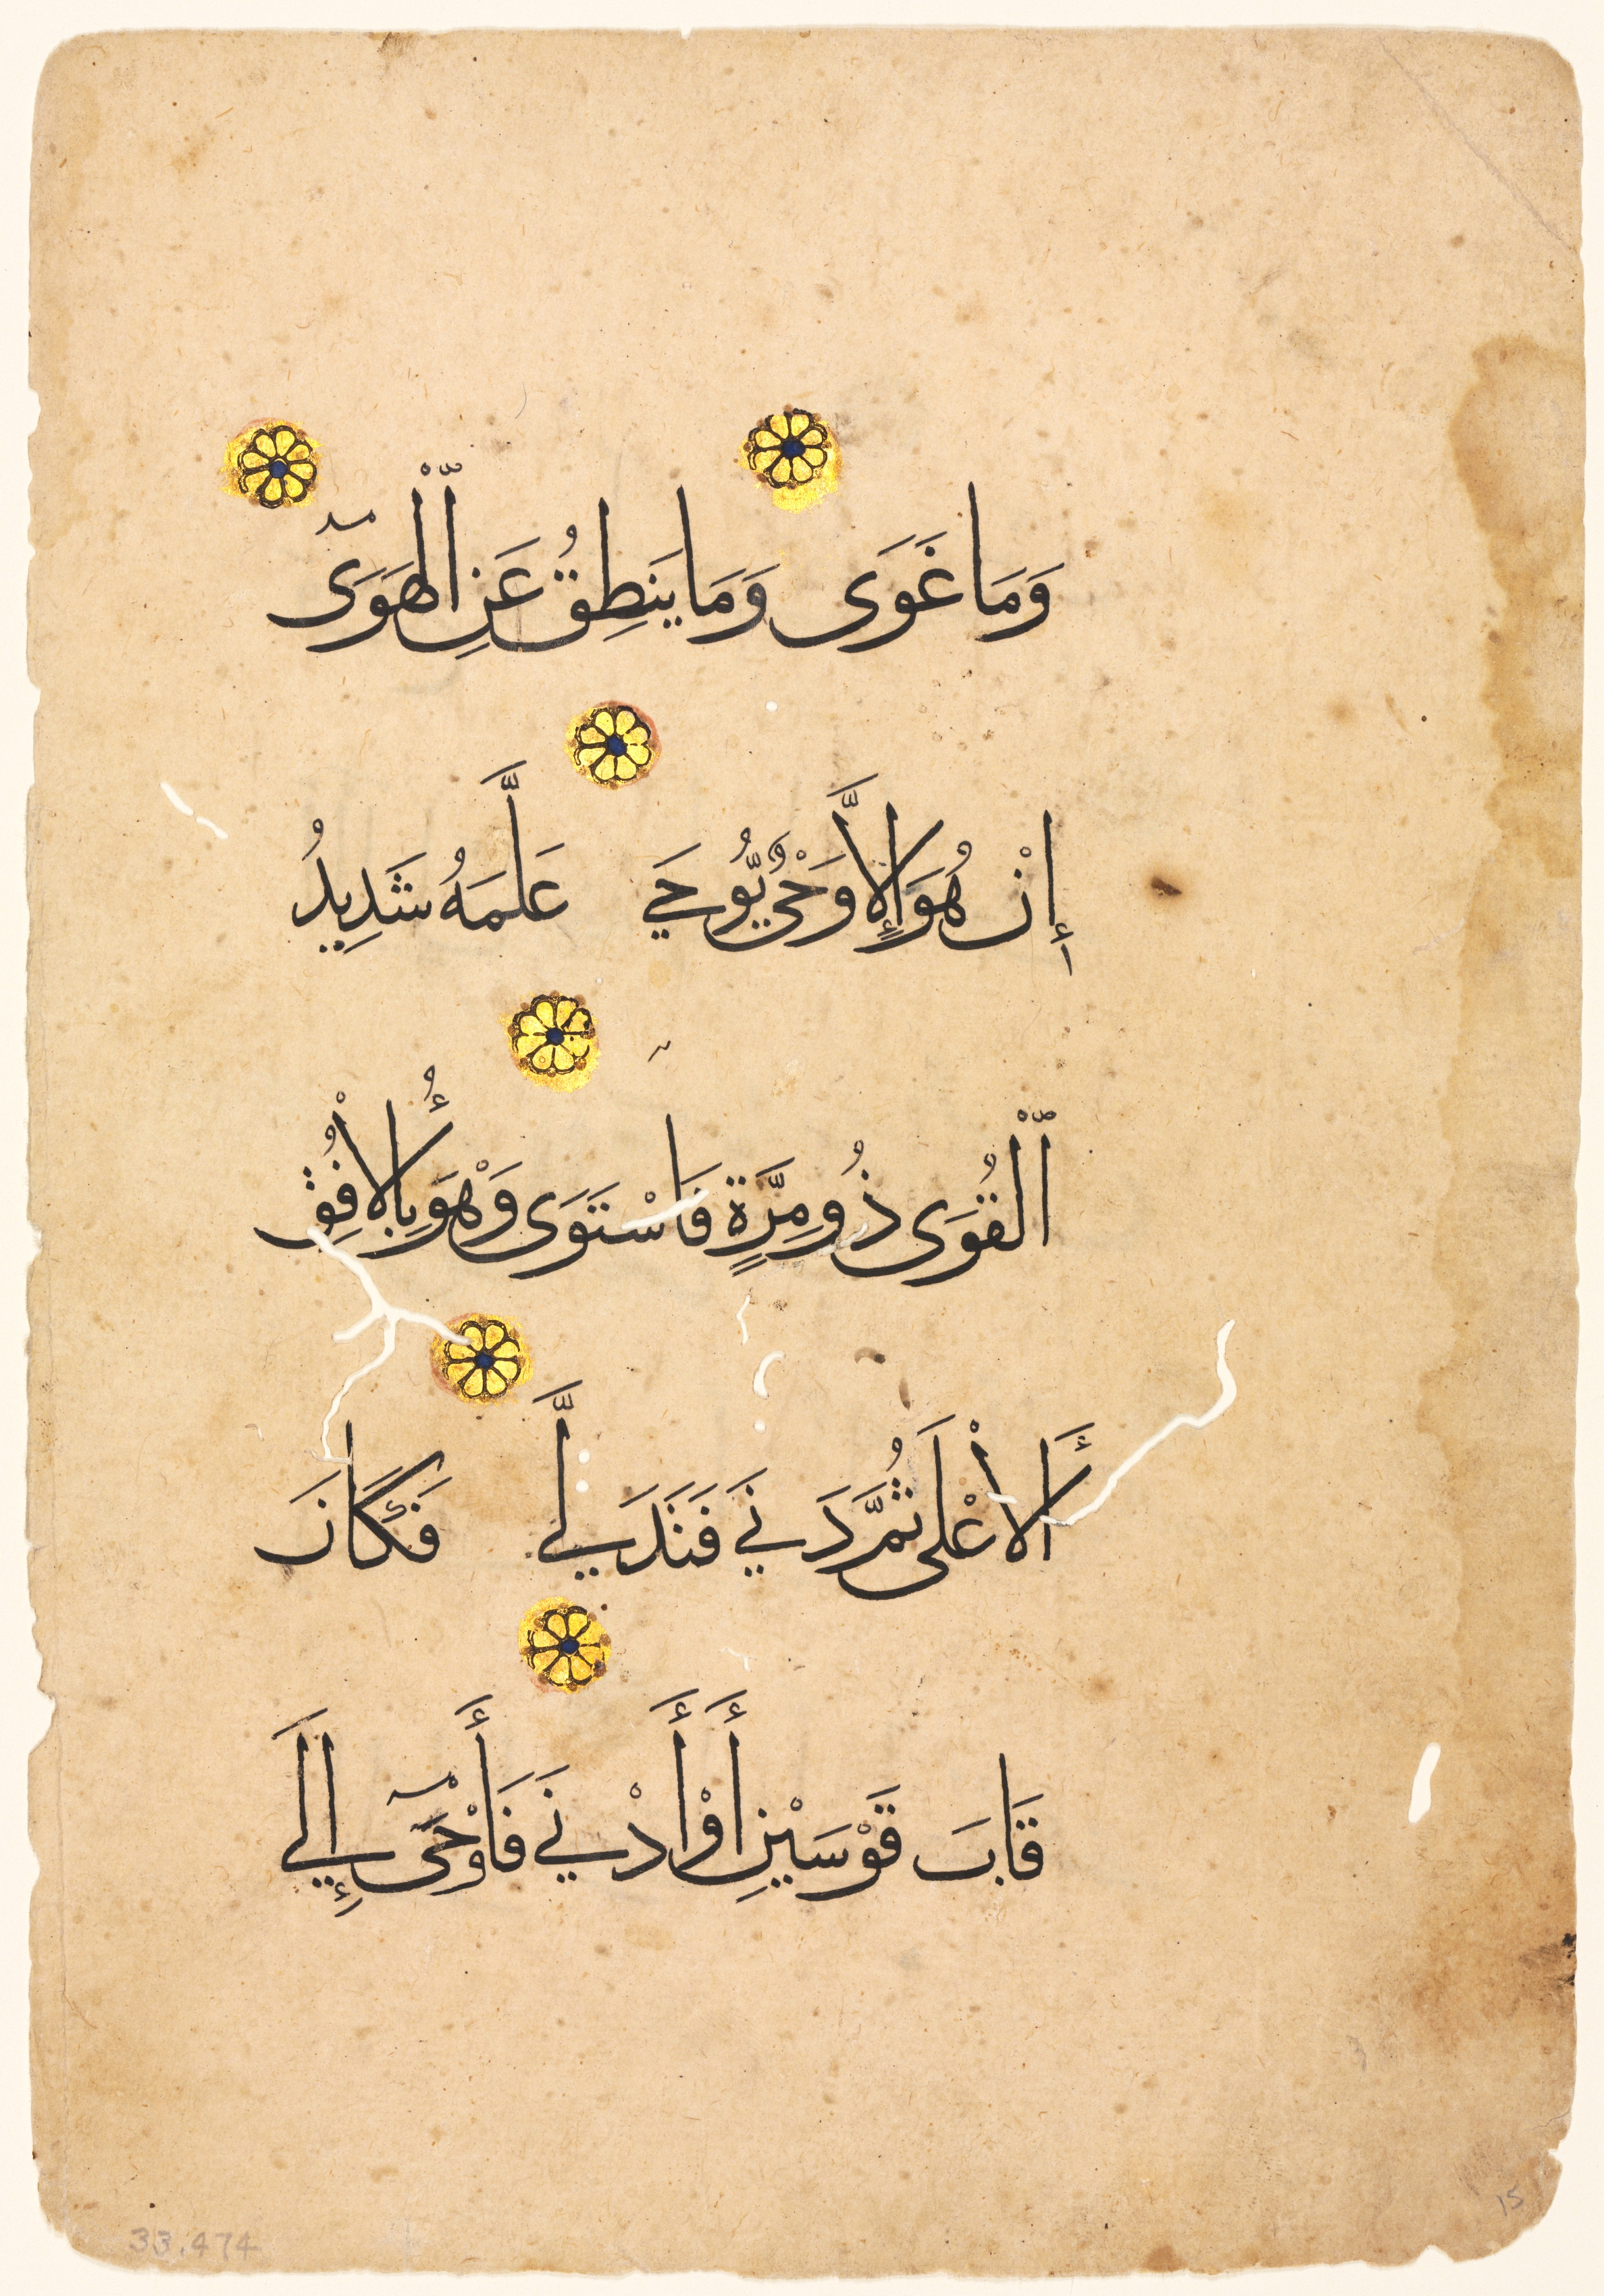 وَمَا غَوَى وَمَا يَنَطِقُ عَنِ ٱلْهَوَىٓ
إِنْ هُوَ إِلَّا وَحْىٌ يُّوحَي عَلَّمَهُ شَدِيدُ
ٱلْقُوَى ذُو مِرَّةٍ فَاسْتَوَى وَهْوَ بِالْأُفُقِ
ٱلْأَعْلَى ثُمَّ دَنَي فَتَدَلَّي فَكَانَ
قَابَ قَوْسَيْنِ أَوْ أَدْنَي فَأَوْحَىٓ إِلَي
33.474
15